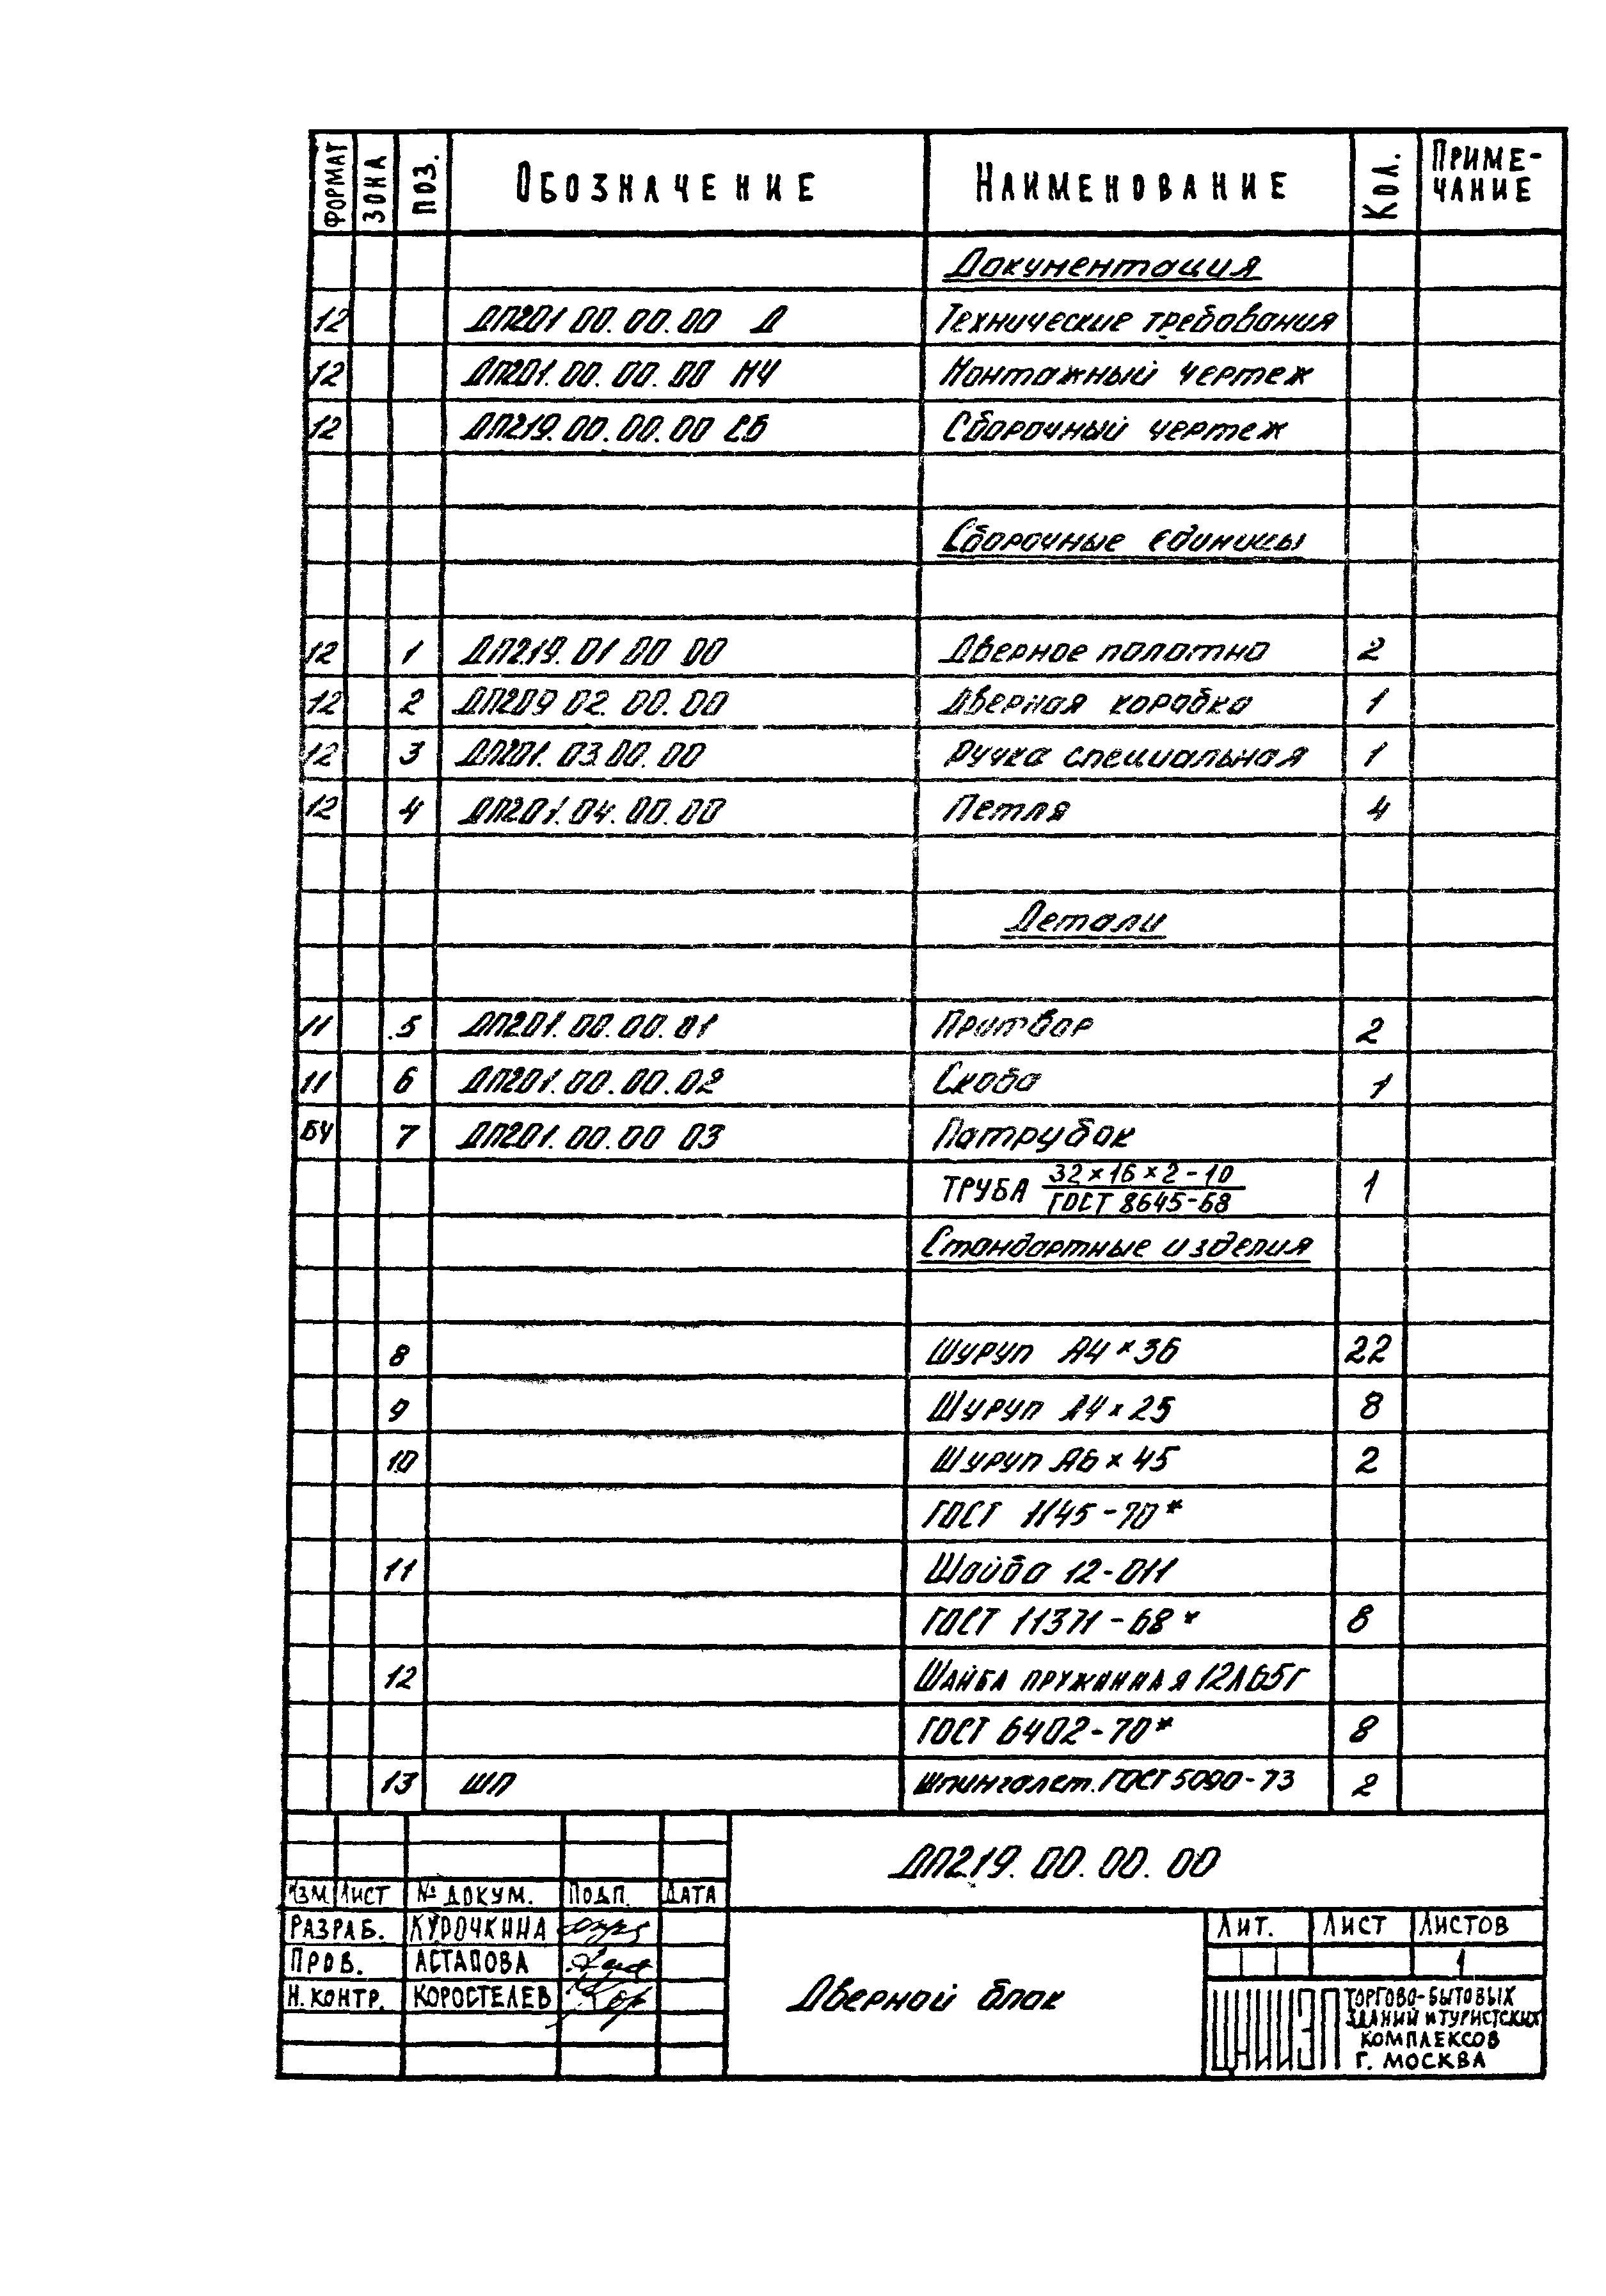 ФОРМАТ ЗОНА ПОЗ. ОБОЗНАЧЕНИЕ НАИМЕНОВАНИЕ КОЛ. ПРИМЕ-
ЧАНИЕ
Документация
12 ДП201 00.00.00 Д Технические требования
12 ДП201.00.00.00 МЧ Монтажный чертеж
12 ДП219.00.00.00 СБ Сборочный чертеж
Сборочные единицы
12 1 ДП219.01 00 00 Дверное полотно 2
12 2 ДП209 02.00.00 Дверная коробка 1
12 3 ДП201.03.00.00 Ручка специальная 1
12 4 ДП201.04.00.00 Петля 4
Детали
11 5 ДП201.00.00.01 Притвор 2
11 6 ДП201.00.00.02 Скоба 1
БЧ 7 ДП201.00.00 03 Патрубок
ТРУБА 32×16×2-10
ГОСТ 8645-68 1
Стандартные изделия
8 Шуруп А4×36 22
9 Шуруп А4×25 8
10 Шуруп А6×45 2
ГОСТ 1145-70*
11 Шайба 12-011
ГОСТ 11371-68* 8
12 ШАЙБА ПРУЖИННАЯ 12Л65Г
ГОСТ 6402-70* 8
13 ШП Шпингалет.ГОСТ 5090-73 2
ДП219.00.00.00
ИЗМ ЛИСТ № ДОКУМ. ПОДП. ДАТА
РАЗРАБ. КУРОЧКИНА
ПРОВ. АСТАПОВА
Н.КОНТР. КОРОСТЕЛЕВ
Дверной блок
ЛИТ. ЛИСТ ЛИСТОВ
1
ЦНИИЭП
ТОРГОВО-БЫТОВЫХ
ЗДАНИЙ И ТУРИСТСКИХ
КОМПЛЕКСОВ
Г. МОСКВА